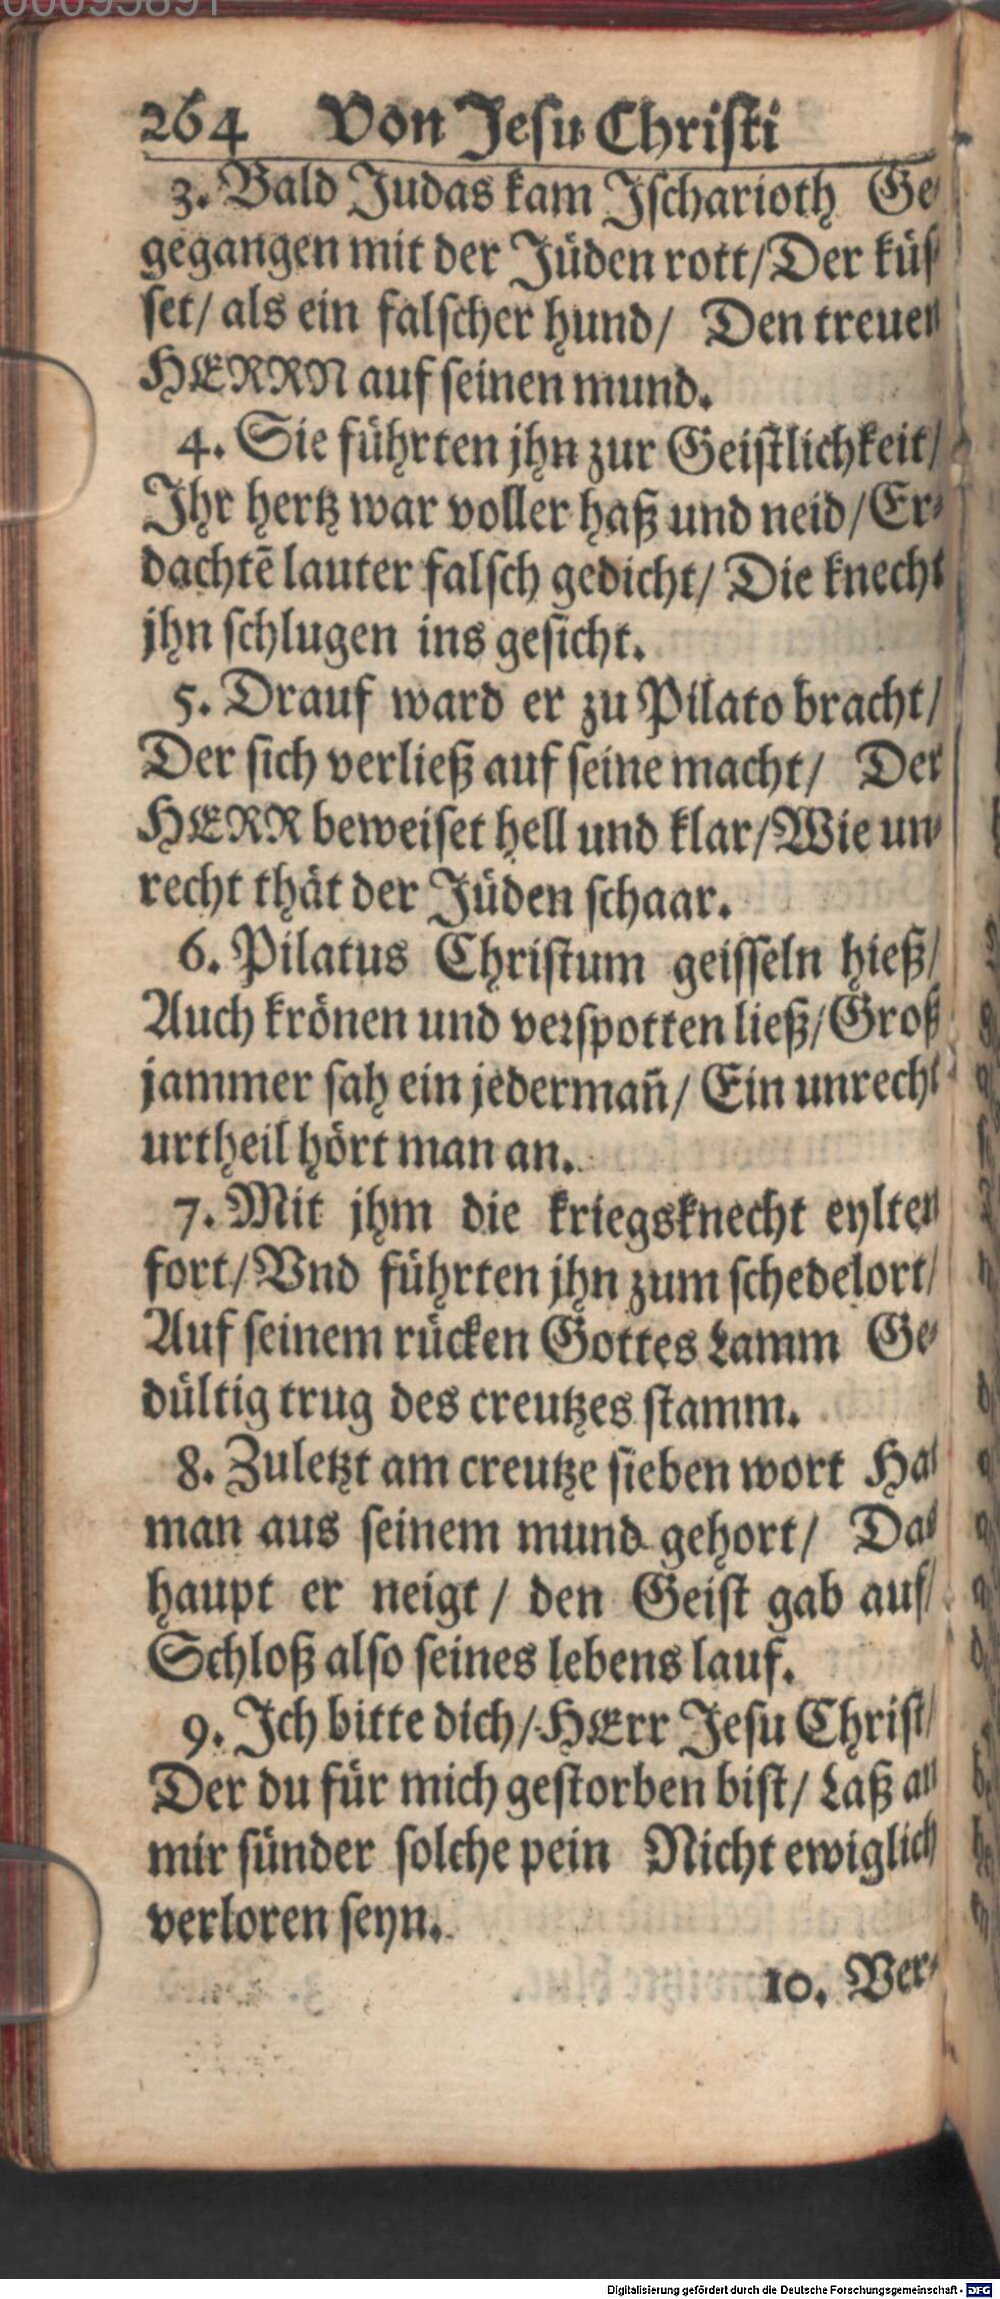 00095891
264 Von Jesu Christi
3. Bald Judas kam Jscharioth Ge-
gegangen mit der Jüden rott/Der küs-
set/ als ein falscher hund/ Den treuen
HERRN auf seinen mund.
4. Sie führten jhn zur Geistlichkeit/
Jhr hertz war voller haß und neid/Er-
dachtē lauter falsch gedicht/ Die knecht
jhn schlugen ins gesicht.
5. Drauf ward er zu Pilato bracht/
Der sich verließ auf seine macht/ Der
HERR beweiset hell und klar/Wie un-
recht thät der Jüden schaar.
6. Pilatus Christum geisseln hieß/
Auch krönen und verspotten ließ/Groß
jammer sah ein jedermañ/ Ein unrecht
urtheil hört man an.
7. Mit jhm die kriegsknecht eylten
fort/Vnd führten jhn zum schedelort/
Auf seinem rücken Gottes Lamm Ge-
dültig trug des creutzes stamm.
8. Zuletzt am creutze sieben wort Hat
man aus seinem mund gehort/ Das
haupt er neigt/ den Geist gab auf/
Schloß also seines lebens lauf.
9. Jch bitte dich/HErr Jesu Christ/
Der du für mich gestorben bist/ Laß an
mir sünder solche pein Nicht ewiglich
verloren seyn.
10. Ver-
Digitalisierung gefördert durch die Deutsche Forschungsgemeinschaft - DFG